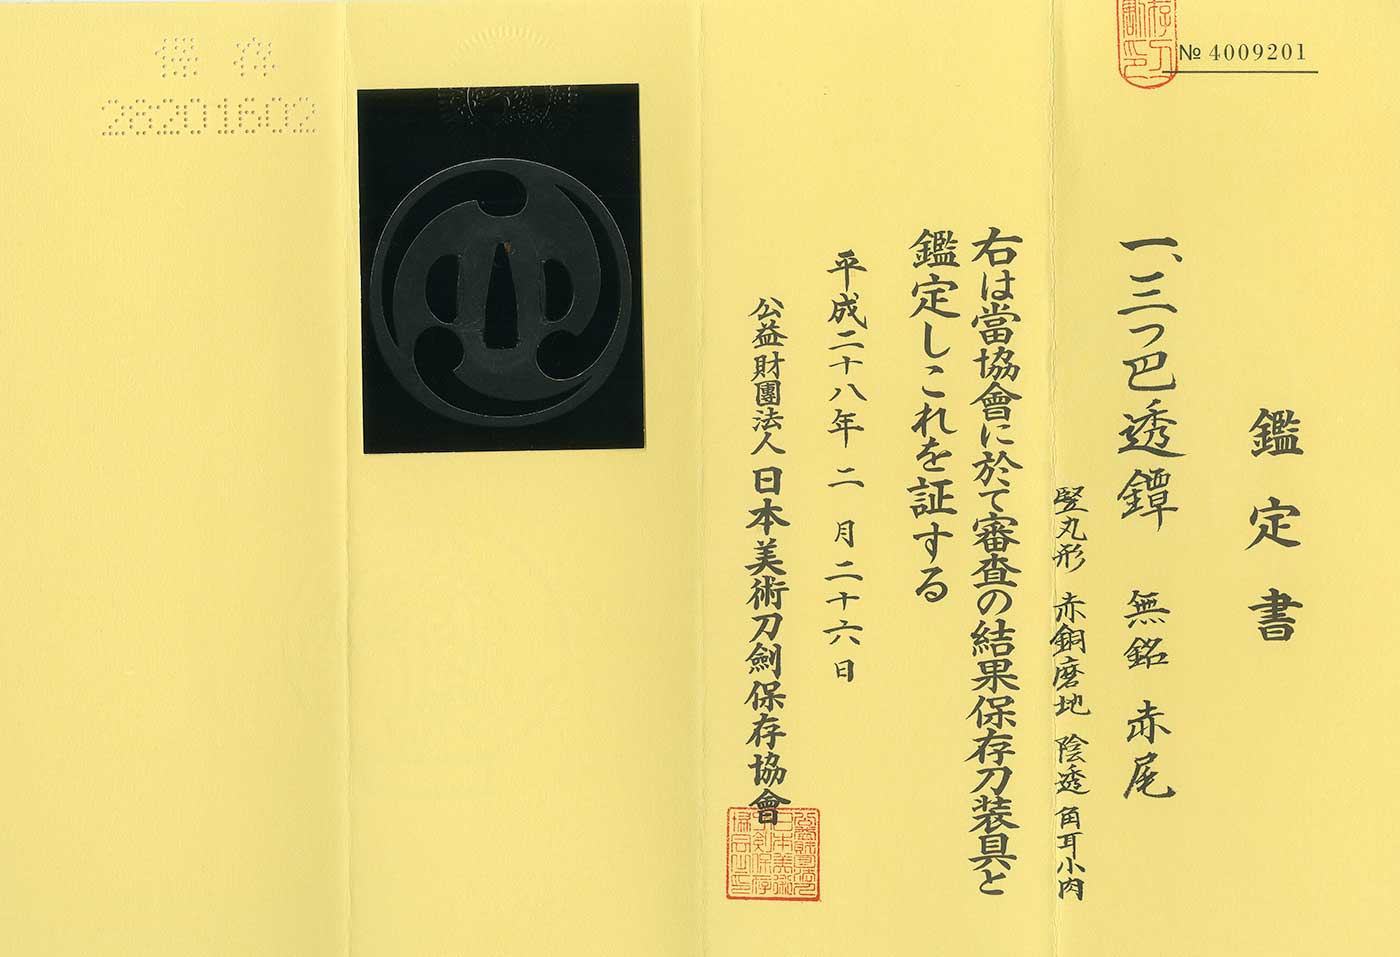 № 4009201
鑑定書
一、三つ巴透鐔 無銘 赤尾
竪丸形 赤銅磨地 陰透 角耳小肉
右は當協會に於て審査の結果保存刀装具と
鑑定しこれを証する
平成二十八年二月二十六日
公益財團法人 日本美術刀劍保存協會
保存
28201602